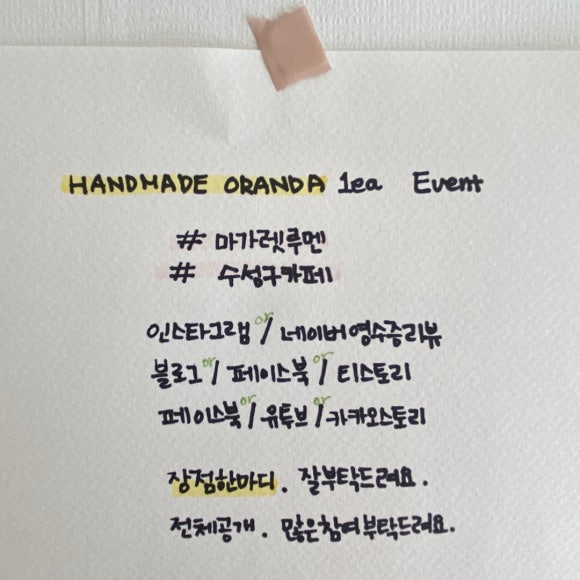 HANDMADE ORANDA 1ea Event
# 마가렛루멘
# 수성구카페
인스타그램 or / 네이버영수증리뷰
블로그 or / 페이스북 or / 티스토리
페이스북 or / 유튜브 or / 카카오스토리
장점한마디. 잘부탁드려요.
전체공개. 많은참여부탁드려요.